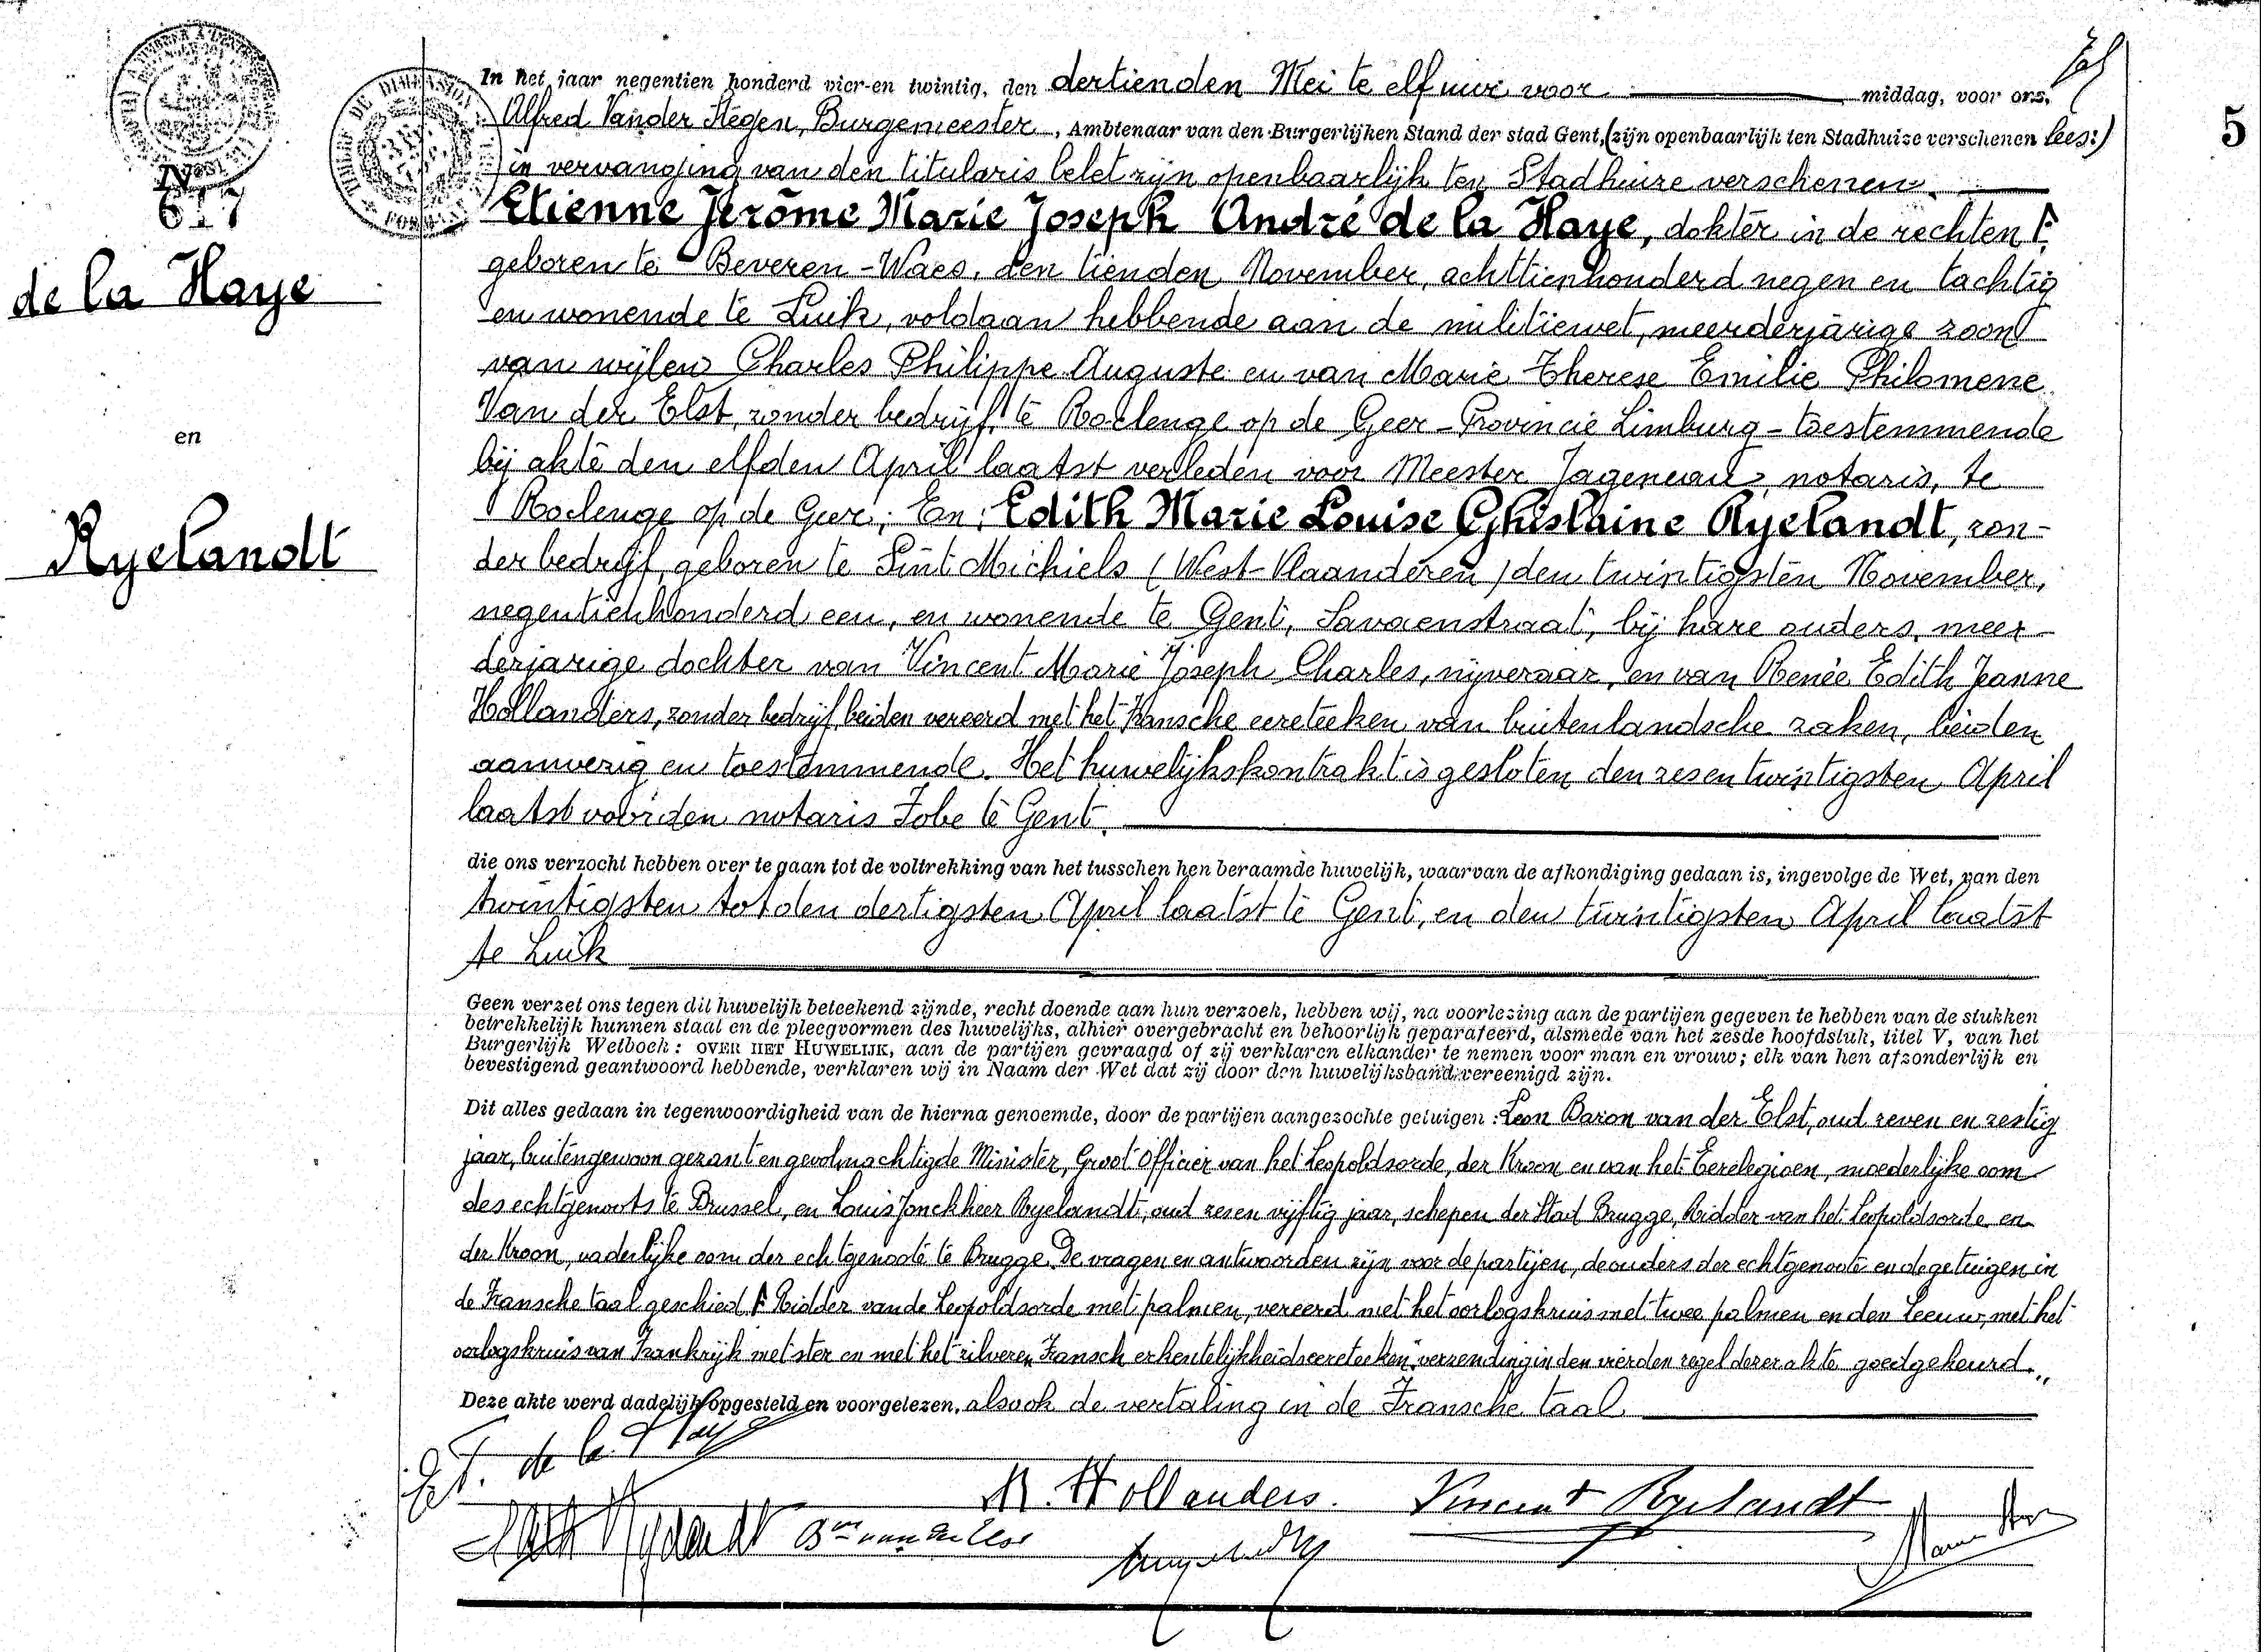 5
In het jaar negentien honderd vier-en twintig, den dertienden Mei te elf uur voor middag, voor ons,
Alfred Vander Stegen, Burgemeester, Ambtenaar van den Burgerlijken Stand der stad Gent, (zijn openbaarlijk ten Stadhuize verschenen lees:)
in vervanging van den titularis belet zijn openbaarlijk ten Stadhuize verschenen.
N°
617
de la Haye
en
Ryelandt
Etienne Jérôme Marie Joseph André de la Haye, dokter in de rechten
geboren te Beveren-Waes, den tienden November, achttienhonderd negen en tachtig
en wonende te Luik, voldaan hebbende aan de militiewet, meerderjarige zoon
van wijlen Charles Philippe Auguste en van Marie Therese Emilie Philomene
Van der Elst, zonder bedrijf, te Roclenge op de Geer - Provincie Limburg - toestemmende
bij akte den elfden April laatst verleden voor Meester Jageneau, notaris, te
Roclenge op de Geer; En; Edith Marie Louise Ghislaine Ryelandt, zon-
der bedrijf, geboren te Sint Michiels (West-Vlaanderen) den twintigsten November,
negentienhonderd een, en wonende te Gent, Savaenstraat, bij hare ouders, meer-
derjarige dochter van Vincent Marie Joseph Charles, nijveraar, en van Renée Edith Jeanne
Hollanders, zonder bedrijf, beiden vereerd met het Fransche eereteeken van buitenlandsche zaken, beiden
aanwezig en toestemmende. Het huwelijkskontrakt is gesloten den zesen twintigsten April
laatst voor den notaris Fobe te Gent.
die ons verzocht hebben over te gaan tot de voltrekking van het tusschen hen beraamde huwelijk, waarvan de afkondiging gedaan is, ingevolge de Wet, van den
twintigsten tot den dertigsten April laatst te Gent, en den twintigsten April laatst
te Luik
Geen verzet ons tegen dit huwelijk beteekend zijnde, recht doende aan hun verzoek, hebben wij, na voorlezing aan de partijen gegeven te hebben van de stukken
betrekkelijk hunnen staat en de pleegvormen des huwelijks, alhier overgebracht en behoorlijk geparafeerd, alsmede van het zesde hoofdstuk, titel V, van het
Burgerlijk Wetboek: OVER HET HUWELIJK, aan de partijen gevraagd of zij verklaren elkander te nemen voor man en vrouw; elk van hen afzonderlijk en
bevestigend geantwoord hebbende, verklaren wij in Naam der Wet dat zij door den huwelijksband vereenigd zijn.
Dit alles gedaan in tegenwoordigheid van de hierna genoemde, door de partijen aangezochte getuigen: Leon Baron van der Elst, oud zeven en zestig
jaar, buitengewoon gezant en gevolmachtigde Minister, Groot Officier van het Leopoldsorde, der Kroon en van het Eerelegioen, moederlijke oom
des echtgenoots te Brussel, en Louis Jonckheer Ryelandt, oud zesen vijftig jaar, schepen der Stad Brugge, Ridder van het Leopoldsorde en
der Kroon, vaderlijke oom der echtgenoote te Brugge. De vragen en antwoorden zijn voor de partijen, de ouders der echtgenoote en de getuigen in
de Fransche taal geschied. Ridder van de Leopoldsorde met palmen, vereerd met het oorlogskruis met twee palmen en den Leeuw, met het
oorlogskruis van Frankrijk met ster en met het zilveren Fransch erkentelijkheidseereteeken, verzending in den vierden regel dezer akte goedgekeurd.
Deze akte werd dadelijk opgesteld en voorgelezen, alsook de vertaling in de Fransche taal
Et. de la Haye
R. Hollanders. Vincent Ryelandt
Edith Ryelandt Bon van der Elst